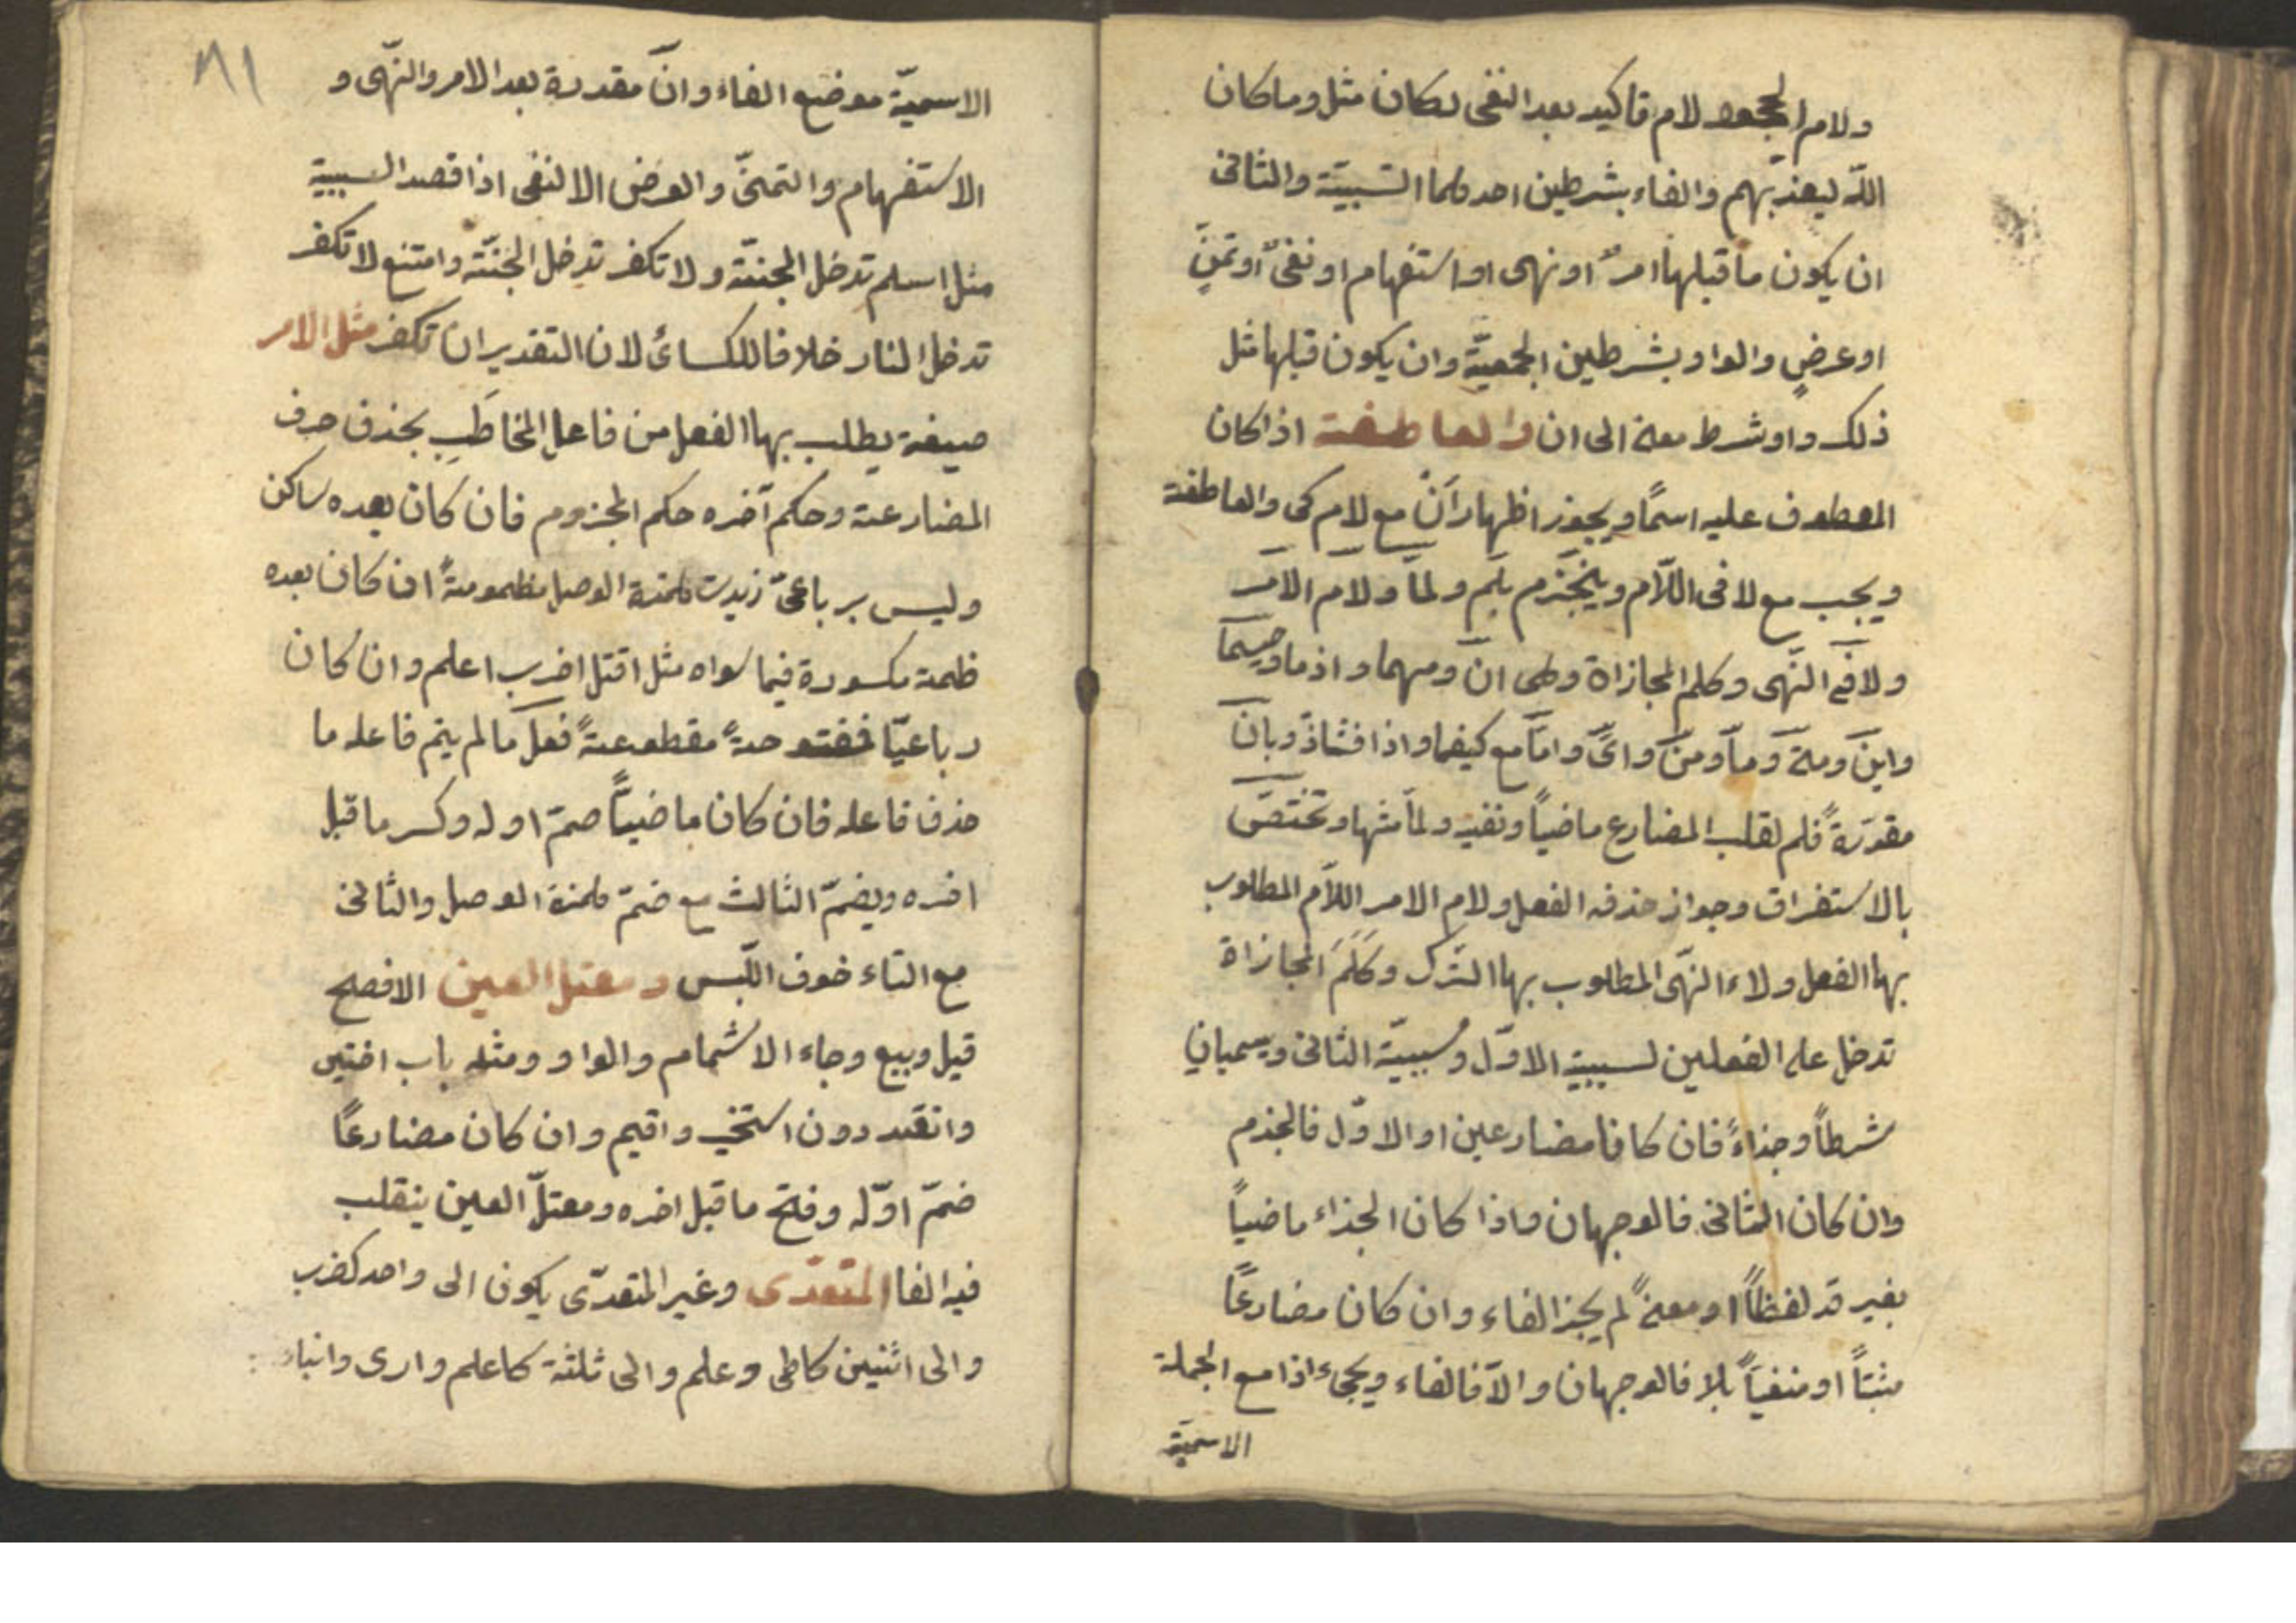 ولام الجحود لام تاكيد بعد النفى لكان مثل وما كان
اللّه ليعذبّهم والفاء بشرطين احدهما السّببيّة والثانى
ان يكون ما قبلها امرٌ او نهى او استفهام او نفىٌ او تمنٍ
او عرضٍ والواو بشرطين الجمعيّة وان يكون قبلها مثل
ذلك واو بشرط معنى الى ان والعاطفة اذا كان
المعطوف عليه اسمًا ويجوز اظهار اَنْ مع لام كى والعاطفة
ويجب مع لا فى اللّام وينجزم بلم ولمّا ولام الامر
ولا فى النّهى وكلم المجازاة وهى ان ومهما واذما وحيثما
واين ومتى وما ومن واىّ وامّا مع كيفما واذا فشاذّ وبان
مقدّرةً فلم لقلب المضارع ماضياً ونفيه ولمّا مثلها وتختصّ
بالاستغراق وجواز حذف الفعل ولام الامر اللّام المطلوب
بها الفعل ولاء النّهى المطلوب بها التّرك وكلم المجازاة
تدخل على الفعلين لسببية الاوّل ومسببيّة الثانى ويسميان
شرطاً وجزاءً فان كانا مضارعين او الاوّل فالجزم
وان كان الثانى فالوجهان واذا كان الجزاء ماضياً
بغير قد لفظاً او معنىً لم يجز الفاء وان كان مضارعًا
مثبتاً او منفيّاً بلا فالوجهان والّا فالفاء ويجىء اذا مع الجملة
الاسميّة
٨١
الاسميّة موضع الفاء وانَ مقدرة بعد الامر والنّهى و
الاستفهام والتمنّى والعرض الا لنفى اذا قصد السببية
مثل اسلم تدخل الجنّة ولا تكفر تدخل الجنّة وامتنع لا تكفر
تدخل النار خلافا للكسائى لان التقدير ان تكفر مثل الامر
صيغة يطلب بها الفعل من فاعل المخاطَب بحذف حرف
المضارعة وحكم آخره حكم المجزوم فان كان بعده ساكن
وليس برباعىّ زيدت همزة الوصل مضمومةً ان كان بعده
ضمة مكسورة فيما سواه مثل اقتل اضرب اعلم وان كان
رباعيّا فمفتوحةً مقطوعةً فعل ما لم يتم فاعله ما
حذف فاعله فان كان ماضيّاً ضمّ اوله وكسر ما قبل
اخره ويضمّ الثالث مع ضمّ همزة الوصل والثانى
مع التاء خوف اللّبس ومعتل العين الافصح
قيل وبيع وجاء الاشمام والواو ومثله باب اختير
وانقيد دون استخير واقيم وان كان مضارعًا
ضمّ اوّله وفتح ما قبل اخره ومعتلّ العين ينقلب
فيه الفا المتعدّى وغير المتعدّى يكون الى واحد كضرب
والى اثنين كاعطى وعلم والى ثلثة كاعلم وارى وانباء